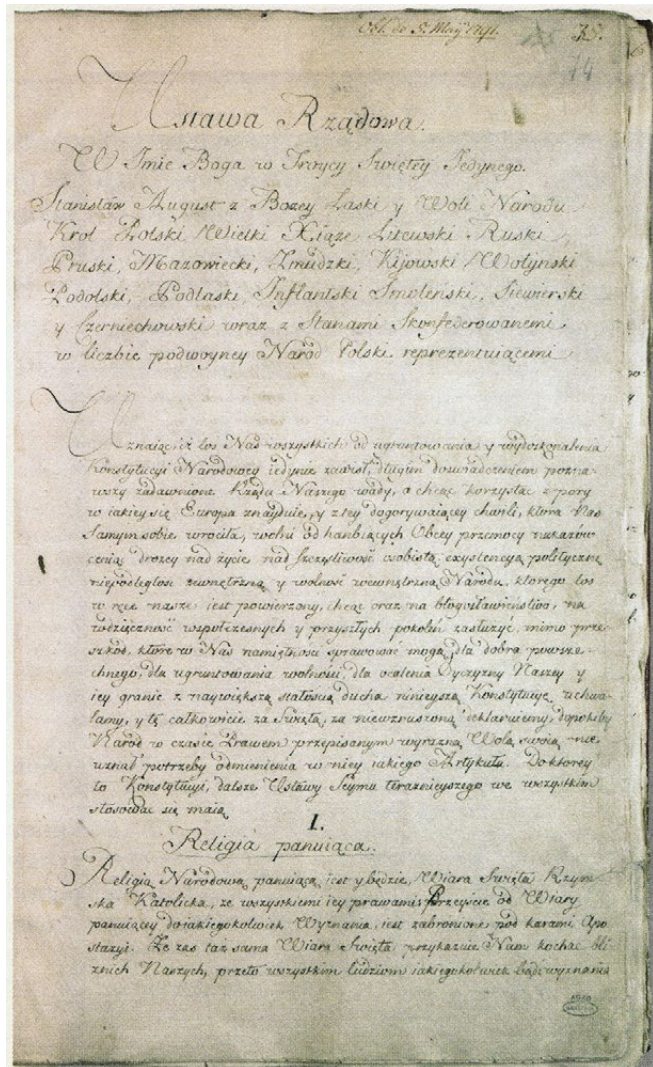 Obl. de 5. Maÿ 1791.
75.
74
Ustawa Rządowa.
W Imie Boga w Troycy Swiętey Jedynego.
Stanisław August z Bozey Łaski y Woli Narodu
Krol Polski, Wielki Xiąze Litewski, Ruski,
Pruski, Mazowiecki, Zmudzki, Kijowski, Wołynski,
Podolski, Podlaski, Inflantski, Smolenski, Siewierski
y Czerniechowski, wraz z Stanami Skonfederowanemi
w liczbie podwoyney Naród Polski reprezentuiącemi
Uznaiąc, iż los Nas wszystkich od ugruntowania y wydoskonalenia
Konstytucyi Narodowey iedynie zawisł, długim doswiadczeniem pozna-
wszy zadawnione Rządu Naszego wady, a chcąc korzystac z pory
w iakiey się Europa znayduie, y z tey dogorywaiącey chwili, ktora Nas
samym sobie wrociła, wolni od hanbiących Obcey przemocy nakazów
ceniąc drozey nad zycie, nad szczęsliwosć osobistą, exystencyą polityczną
niepodległosc zewnętrzną y wolnosc wewnętrzną Narodu, ktorego los
w ręce nasze iest powierzony, chcąc oraz na błogosławienstwo, na
wdzięcznosc wspołczesnych y przyszłych pokolen zasłuzyc, mimo prze-
szkód, które w Nas namiętnosci sprawowac mogą, dla dobra powsze-
chnego, dla ugruntowania wolnosci, dla ocalenia Oyczyzny Naszey y
iey granic z naywiększą stałoscią ducha ninieyszą Konstytucyę uchwa-
lamy, y tę całkowicie za Swiętą, za niewzruszoną deklaruiemy, dopokiby
Naród w czasie Prawem przepisanym wyrazną Wolą swoią nie
uznał potrzeby odmienienia w niey iakiego Artykułu. Do ktorey
to Konstytucyi, dalsze Ustawy Seymu terazniejszego we wszystkim
stosowac się maią.
I.
Religia panuiąca.
Religią Narodową panuiącą iest y będzie, Wiara Swięta Rzym-
ska Katolicka, ze wszystkiemi iey prawami. Przejscie od Wiary
panuiącey do iakiegokolwiek Wyznania, iest zabronione pod karami Apo-
stazyi. Ze zas taż sama Wiara Swięta przykazuie Nam kochac bli-
znich Naszych, przeto wszystkim ludziom iakiegokolwiek bądz wyznania